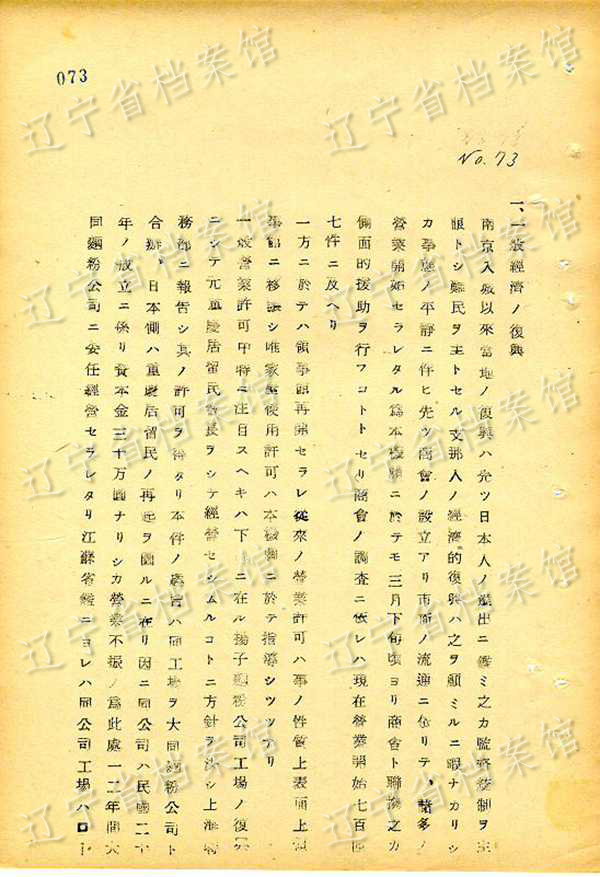 073
No. 73
一、一般經濟ノ復興
南京入城以來當地ノ復興ハ先ツ日本人ノ進出ニ鑑ミ之カ監督統制ヲ主
眼トシ難民ヲ主トセル支那人ノ經濟的復興ハ之ヲ顧ミルニ暇ナカリシ
カ事態ノ平靜ニ伴ヒ先ツ商會ノ設立アリ市面ノ流通ニ依リテ諸多ノ
營業開始セラレタル爲本機關ニ於テモ三月下旬頃ヨリ商會ト聯携之カ
側面的援助ヲ行フコトトセリ商會ノ調査ニ依レハ現在營業開始七百
七件ニ及ヘリ
一方ニ於テハ領事館再開セラレ從來ノ營業許可ハ事ノ性質上表面上領
事館ニ移讓シ唯家屋使用許可ハ本機關ニ於テ指導シツツアリ
一般營業許可中特ニ注目スヘキハ下
ニ在ル揚子麵粉公司工場ノ復興
ニシテ元重慶居留民會長ヲシテ經營セシムルコトニ方針ヲ決シ上海特
務部ニ報告シ其ノ許可ヲ得タリ本件ノ趣旨ハ同工場ヲ大同麵粉公司ト
合辦、日本側ハ重慶居留民ノ再起ヲ圖ルニ在リ因ニ同公司ハ民國二十
年ノ成立ニ係リ資本金三十万圓ナリシカ營業不振ノ爲此處一二年間大
同麵粉公司ニ委任經營セラレタリ江蘇省鑑ニヨレハ同公司工場ハ口
辽宁省档案馆
辽宁省档案馆
辽宁省档案馆
辽宁省档案馆
辽宁省档案馆
辽宁省档案馆
辽宁省档案馆
辽宁省档案馆